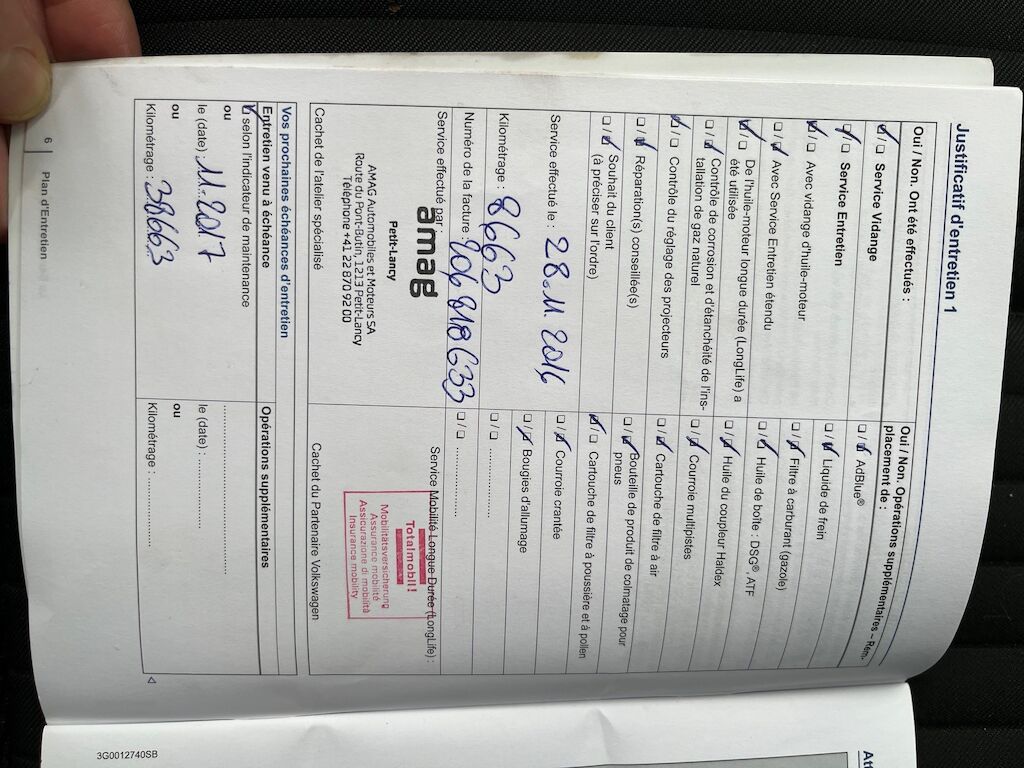 Justificatif d'entretien 1
Oui / Non. Ont été effectués :
☑ / ☐ Service Vidange
☑ / ☐ Service Entretien
☑ / ☐ Avec vidange d'huile-moteur
☐ / ☑ Avec Service Entretien étendu
☑ / ☐ De l'huile-moteur longue durée (LongLife) a
été utilisée
☐ / ☑ Contrôle de corrosion et d'étanchéité de l'ins-
tallation de gaz naturel
☑ / ☐ Contrôle du réglage des projecteurs
☐ / ☑ Réparation(s) conseillée(s)
☐ / ☑ Souhait du client
(à préciser sur l'ordre)
Service effectué le : 28.11.2016
Kilométrage : 8663
Numéro de la facture 206 818 633
Service effectué par :
amag
Petit-Lancy
AMAG Automobiles et Moteurs SA
Route du Pont-Butin, 1213 Petit-Lancy
Téléphone +41 22 870 92 00
Cachet de l'atelier spécialisé
Oui / Non. Opérations supplémentaires – Rem-
placement de :
☐ / ☑ AdBlue®
☐ / ☑ Liquide de frein
☐ / ☑ Filtre à carburant (gazole)
☐ / ☑ Huile de boîte : DSG®, ATF
☐ / ☑ Huile du coupleur Haldex
☐ / ☑ Courroie multipistes
☐ / ☑ Cartouche de filtre à air
☐ / ☑ Bouteille de produit de colmatage pour
pneus
☑ / ☐ Cartouche de filtre à poussière et à pollen
☐ / ☑ Courroie crantée
☐ / ☑ Bougies d'allumage
☐ / ☐ ..................
☐ / ☐ ..................
Service Mobilité Longue Durée (LongLife) :
Totalmobil!
Mobilitätsversicherung
Assurance mobilité
Assicurazione di mobilità
Insurance mobility
Cachet du Partenaire Volkswagen
Vos prochaines échéances d'entretien
Entretien venu à échéance
☑ selon l'indicateur de maintenance
ou
le (date) : 11.2017
ou
Kilométrage : 38663
Opérations supplémentaires
..................
le (date) : ..................
ou
Kilométrage : ..................
6 Plan d'Entretien
3G0012740SB
Att